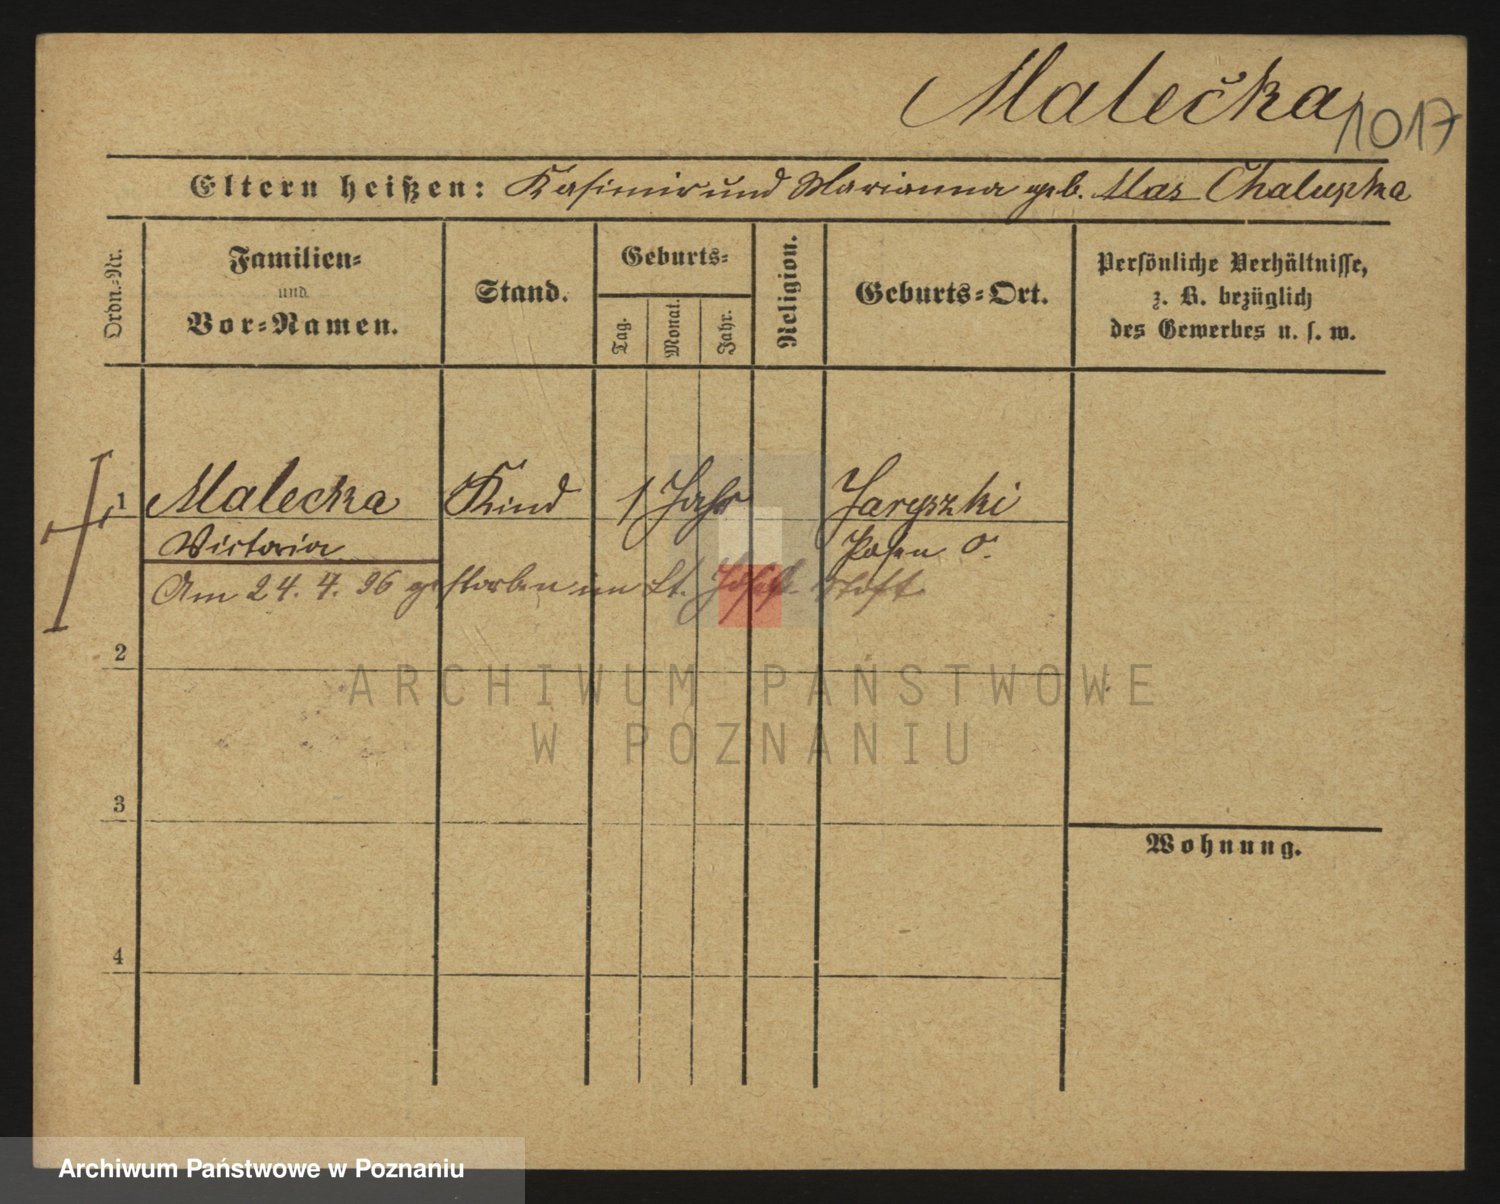 Malečka
1017
Eltern heißen: Kasimir und Marianna geb. Chalupka
Ordn.-Nr.
Familien-
und
Vor-Namen.
Stand.
Geburts-
Tag.
Monat.
Jahr.
Religion.
Geburts-Ort.
Persönliche Verhältnisse,
z. B. bezüglich
des Gewerbes u. s. w.
1 Malecka Kind 1 Jahr
Victoria Posen O.
Am 24. 4. 96 gestorben im St. Josef Stift
2
3
4
Wohnung.
ARCHIWUM PAŃSTWOWE
W POZNANIU
Archiwum Państwowe w Poznaniu